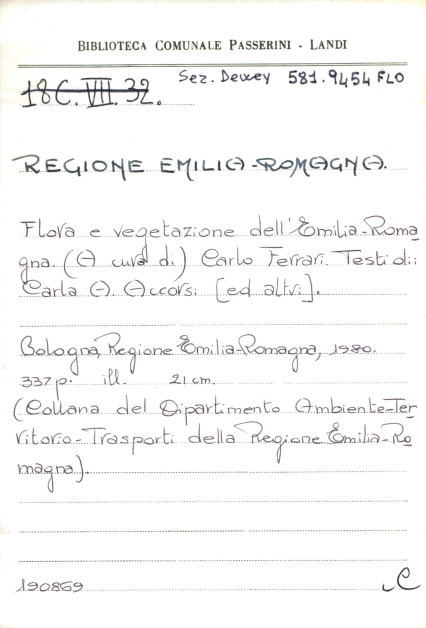 BIBLIOTECA COMUNALE PASSERINI - LANDI
Sez. Dewey 581.9454 FLO
18C.VII.32.
REGIONE EMILIA-ROMAGNA.
Flora e vegetazione dell'Emilia-Roma
gna. (A cura di) Carlo Ferrari. Testi di:
Carla A. Accorsi [ed altri].
Bologna, Regione Emilia-Romagna, 1980.
337 p. ill. 21 cm.
(Collana del Dipartimento Ambiente-Ter
ritorio-Trasporti della Regione Emilia-Ro
magna).
190869